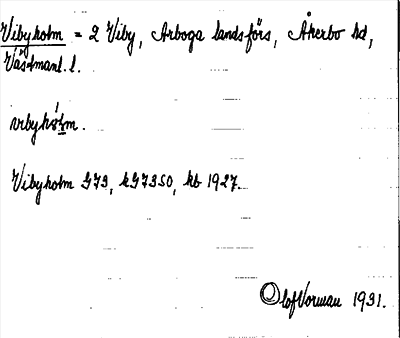 Vibyholm = 2 Viby, Arboga landsförs, Åkerbo hd,
Västmanl. l.
vibyhòlm.
Vibyholm G73, kG73SO, kb 1927.
Olof Vorman 1931.